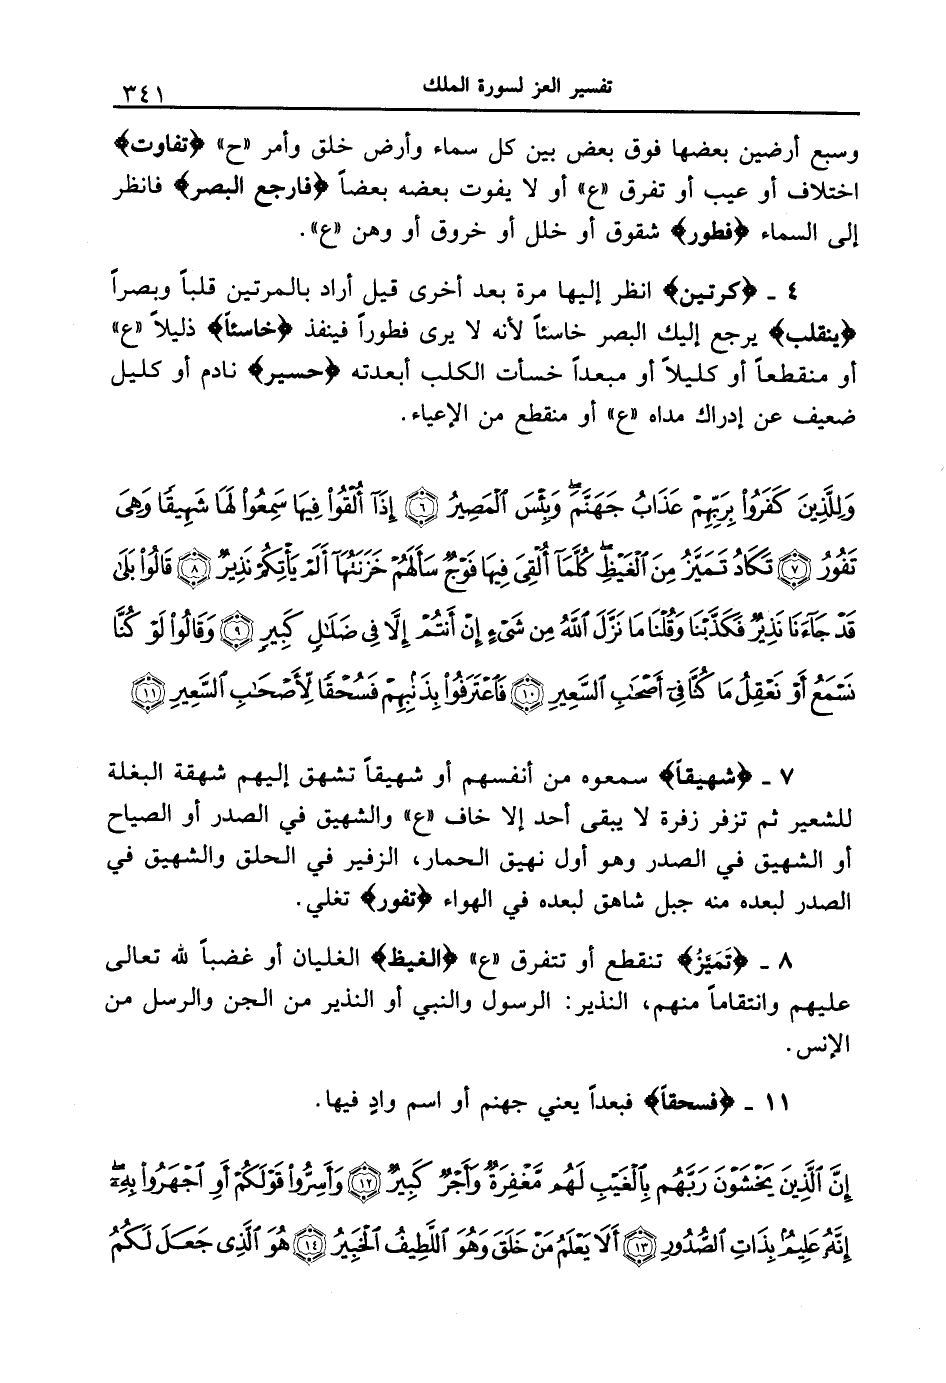 تفسير العز لسورة الملك ٣٤١
وسبع أرضين بعضها فوق بعض بين كل سماء وأرض خلق وأمر «ح» ﴿تفاوت﴾
اختلاف أو عيب أو تفرق «ع» أو لا يفوت بعضه بعضاً ﴿فارجع البصر﴾ فانظر
إلى السماء ﴿فطور﴾ شقوق أو خلل أو خروق أو وهن «ع».
٤ ـ ﴿كرتين﴾ انظر إليها مرة بعد أخرى قيل أراد بالمرتين قلباً وبصراً
﴿ينقلب﴾ يرجع إليك البصر خاسئاً لأنه لا يرى فطوراً فينفذ ﴿خاسئاً﴾ ذليلاً «ع»
أو منقطعاً أو كليلاً أو مبعداً خسأت الكلب أبعدته ﴿حسير﴾ نادم أو كليل
ضعيف عن إدراك مداه «ع» أو منقطع من الإعياء.
وَلِلَّذِينَ كَفَرُواْ بِرَبِّهِمْ عَذَابُ جَهَنَّمَۖ وَبِئْسَ ٱلْمَصِيرُ ﴿٦﴾ إِذَآ أُلْقُواْ فِيهَا سَمِعُواْ لَهَا شَهِيقًا وَهِىَ
تَفُورُ ﴿٧﴾ تَكَادُ تَمَيَّزُ مِنَ ٱلْغَيْظِۖ كُلَّمَآ أُلْقِىَ فِيهَا فَوْجٌ سَأَلَهُمْ خَزَنَتُهَآ أَلَمْ يَأْتِكُمْ نَذِيرٌ ﴿٨﴾ قَالُواْ بَلَىٰ
قَدْ جَآءَنَا نَذِيرٌ فَكَذَّبْنَا وَقُلْنَا مَا نَزَّلَ ٱللَّهُ مِن شَىْءٍ إِنْ أَنتُمْ إِلَّا فِى ضَلَٰلٍ كَبِيرٍ ﴿٩﴾ وَقَالُواْ لَوْ كُنَّا
نَسْمَعُ أَوْ نَعْقِلُ مَا كُنَّا فِىٓ أَصْحَٰبِ ٱلسَّعِيرِ ﴿١٠﴾ فَٱعْتَرَفُواْ بِذَنۢبِهِمْ فَسُحْقًا لِّأَصْحَٰبِ ٱلسَّعِيرِ ﴿١١﴾
٧ ـ ﴿شهيقاً﴾ سمعوه من أنفسهم أو شهيقاً تشهق إليهم شهقة البغلة
للشعير ثم تزفر زفرة لا يبقى أحد إلا خاف «ع» والشهيق في الصدر أو الصياح
أو الشهيق في الصدر وهو أول نهيق الحمار، الزفير في الحلق والشهيق في
الصدر لبعده منه جبل شاهق لبعده في الهواء ﴿تفور﴾ تغلي.
٨ ـ ﴿تَمَيَّزُ﴾ تنقطع أو تتفرق «ع» ﴿الغيظ﴾ الغليان أو غضباً لله تعالى
عليهم وانتقاماً منهم، النذير: الرسول والنبي أو النذير من الجن والرسل من
الإنس.
١١ ـ ﴿فسحقاً﴾ فبعداً يعني جهنم أو اسم وادٍ فيها.
إِنَّ ٱلَّذِينَ يَخْشَوْنَ رَبَّهُم بِٱلْغَيْبِ لَهُم مَّغْفِرَةٌ وَأَجْرٌ كَبِيرٌ ﴿١٢﴾ وَأَسِرُّواْ قَوْلَكُمْ أَوِ ٱجْهَرُواْ بِهِۦٓۖ
إِنَّهُۥ عَلِيمٌۢ بِذَاتِ ٱلصُّدُورِ ﴿١٣﴾ أَلَا يَعْلَمُ مَنْ خَلَقَ وَهُوَ ٱللَّطِيفُ ٱلْخَبِيرُ ﴿١٤﴾ هُوَ ٱلَّذِى جَعَلَ لَكُمُ